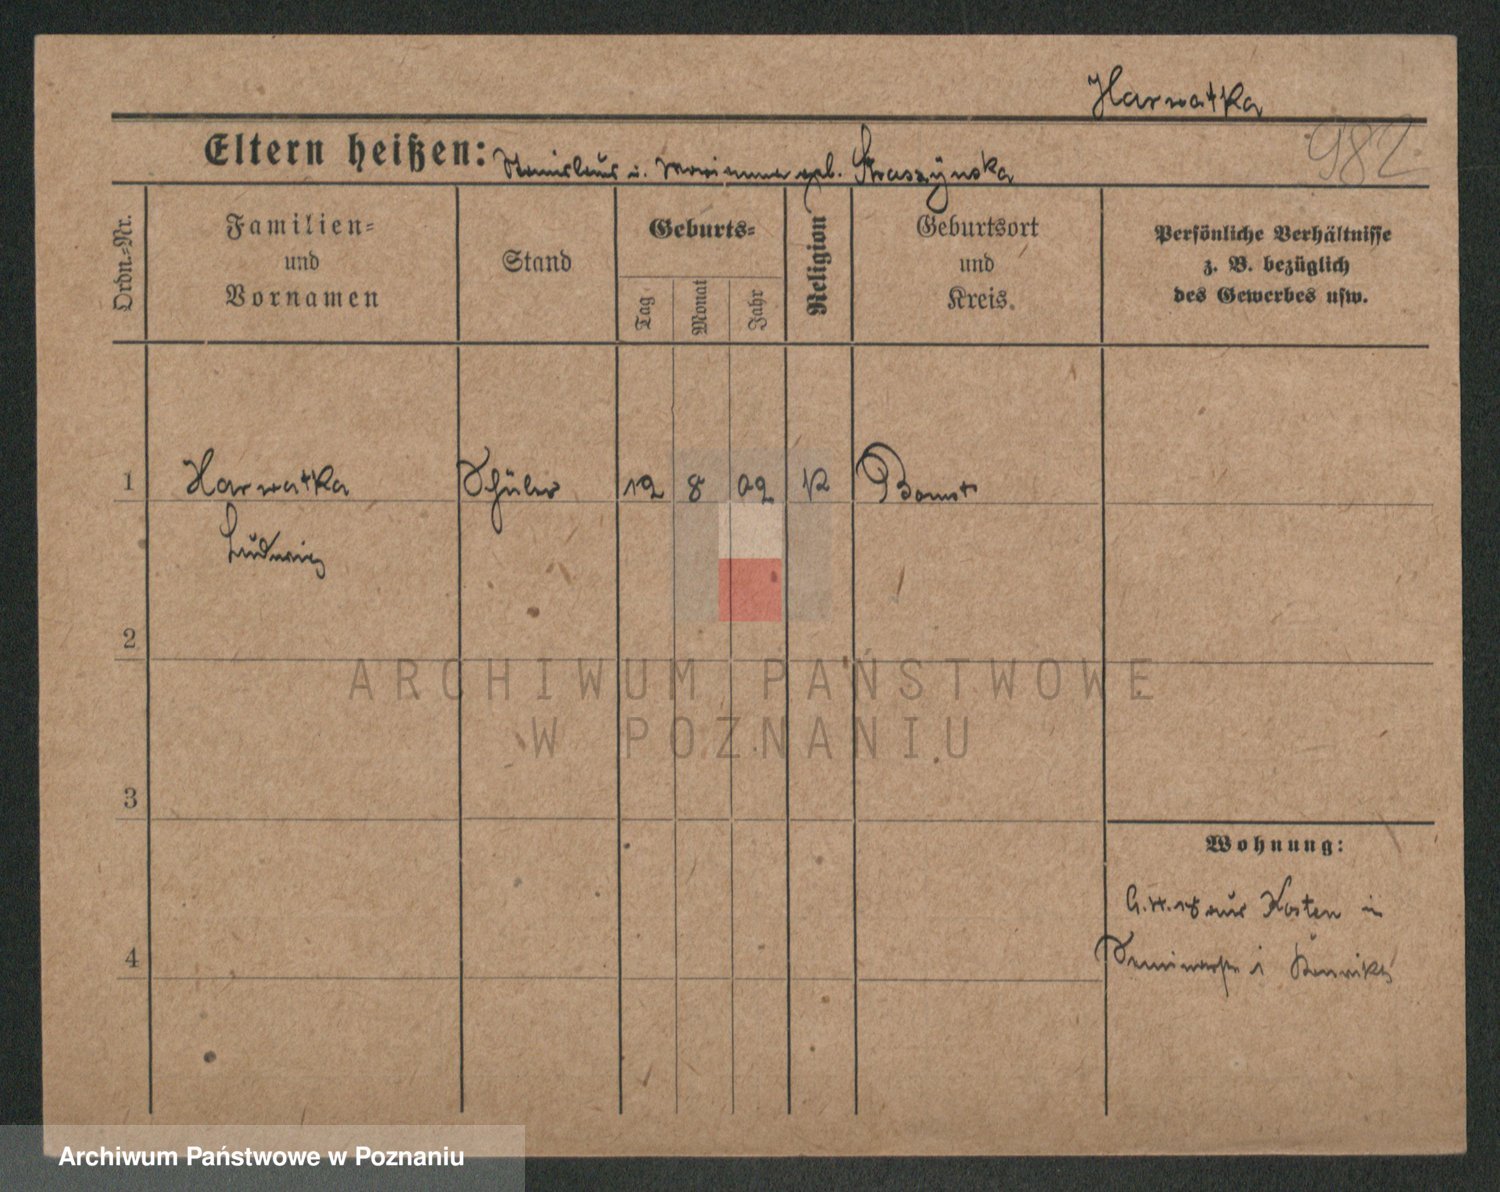 Harwatka
982
Eltern heißen: Stanislaus u. Marianna geb. Straszynska
Ordn.-Nr.
Familien-
und
Vornamen
Stand
Geburts-
Tag
Monat
Jahr
Religion
Geburtsort
und
Kreis.
Persönliche Verhältnisse
z. B. bezüglich
des Gewerbes usw.
1 Harwatka Schüler 12 8 02 K Bomst
Ludwig
2
ARCHIWUM PAŃSTWOWE
W POZNANIU
3
Wohnung:
aus Kosten in
4
Archiwum Państwowe w Poznaniu